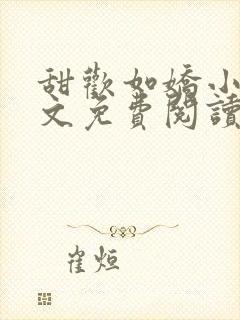 甜歡如嬌小
文免費閱讀
崔烜